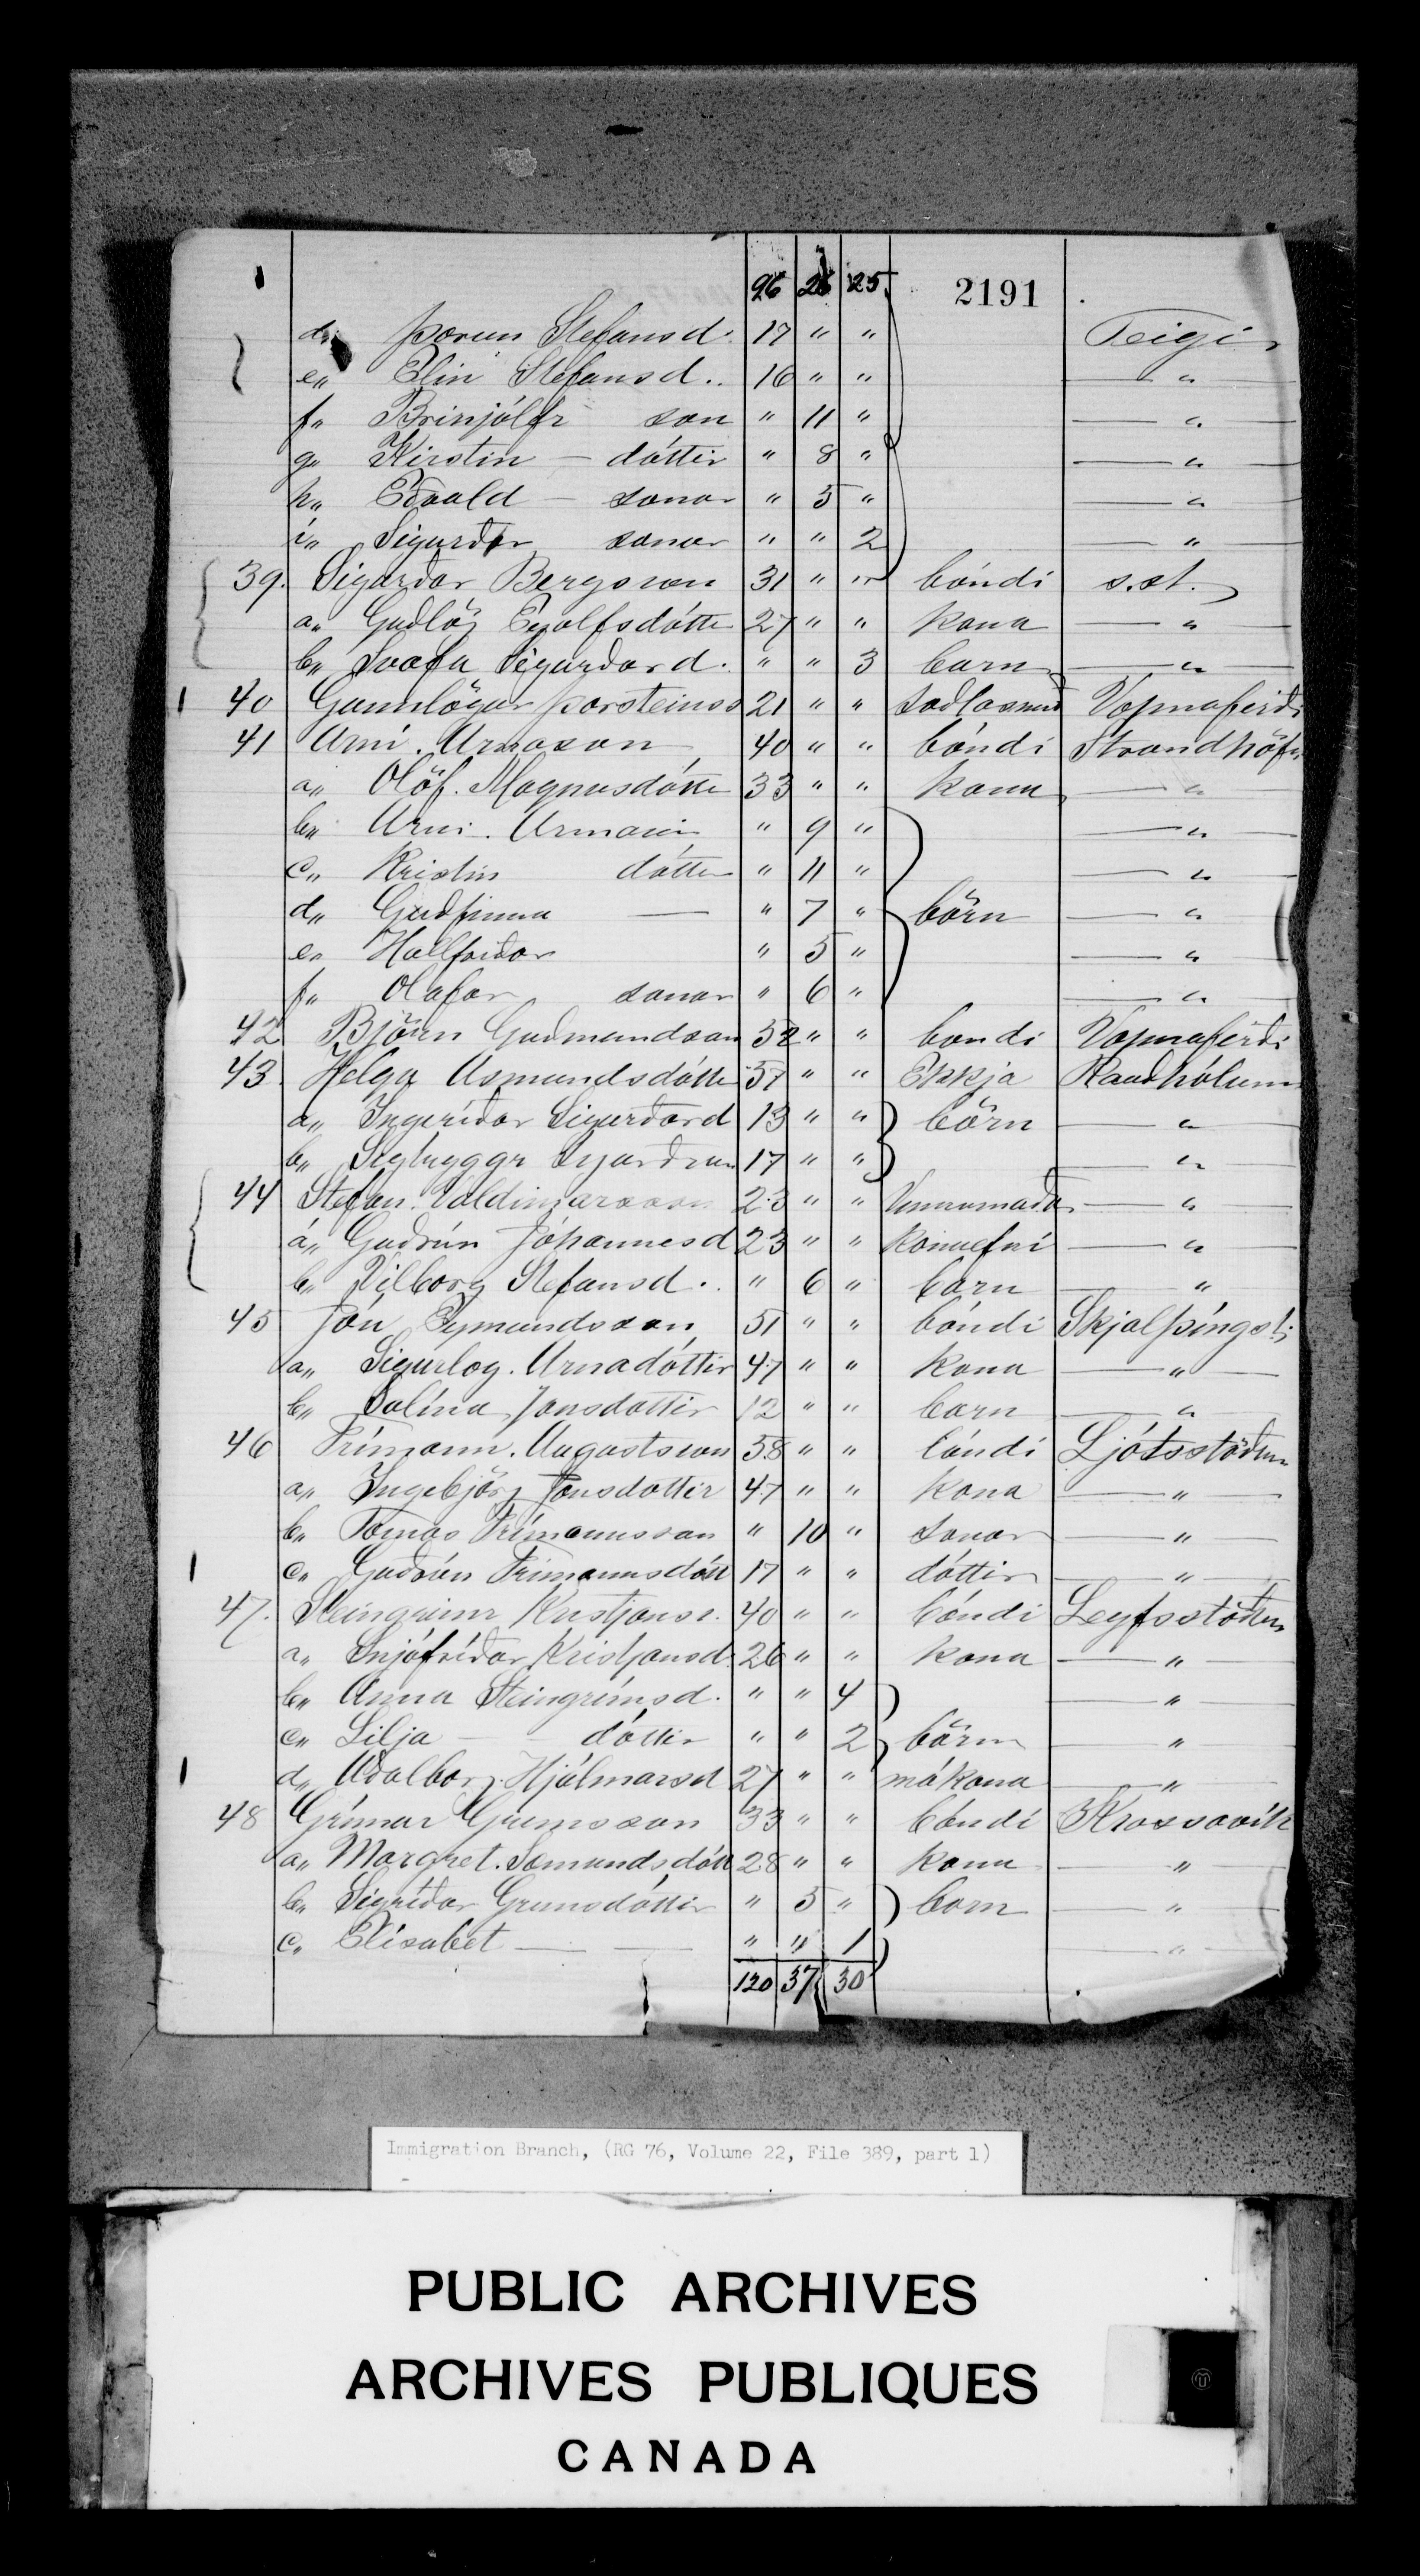 96 26 25 2191
d„ Þorun Stefansd. 17 „ „ Teigi
e„ Elin Stefansd.. 16 „ „ — „ —
f„ Brinjólfr son „ 11 „ — „ —
g„ Kirstin — dóttir „ 8 „ — „ —
h„ Edvald — sonar „ 5 „ — „ —
i„ Sigurðr sonar „ „ 2 — „ —
39. Sigurðar Bergsson 31 „ „ bóndi s.st.
a„ Guðlög Eyolfsdótte 27 „ „ kona — „ —
b„ Svafa Sigurðard. „ „ 3 barn — „ —
40 Gunnlögur Þorsteinss 21 „ „ Vopnafirdi
41 Arni. Arnason 40 „ „ bóndi Strandhöfn
a„ Olöf. Magnusdótte 33 „ „ kona — „ —
b„ Arni. „ 9 „ — „ —
c„ Kristin dótte „ 11 „ — „ —
d„ Guðfinna — „ 7 „ börn — „ —
e„ Hallfriðar „ 5 „ — „ —
f„ Olafar sonar „ 6 „ — „ —
42 Björn Guðmundson 52 „ „ bondi Vopnafirdi
43. Helga Asmundsdótte 57 „ „ Ekkja Raudhólum
a„ Ingeriðar Sigurðard 13 „ „ börn — „ —
b„ Sigtryggr 17 „ „ — „ —
44 Stefan. Valdimarsson 23 „ „ Vinnumaðr — „ —
a„ Guðrún Jóhannesd 23 „ „ konuefni — „ —
b„ Vilborg Stefansd. „ 6 „ barn — „ —
45 Jón Eymundsson 51 „ „ bóndi Skjalþingst:
a„ Sigurlog. Arnadóttir 47 „ „ kona — „ —
b„ Salína Jonsdottir 12 „ „ barn — „ —
46 Frímann. Augustsson 58 „ „ bóndi Ljótsstöðum
a„ Ingebjörg Jonsdottir 47 „ „ kona — „ —
b„ Tomas Frímannsson „ 10 „ sonar — „ —
c„ Guðrún Frimannsdótt 17 „ „ dóttir — „ —
47. Steingrimr Kristjanss. 40 „ „ bóndi Leyfsstöðum
a„ Snjófríðar Kristjansd. 26 „ „ kona — „ —
b„ Anna Steingrímsd. „ „ 4 — „ —
c„ Lilja — dóttir „ „ 2 börn — „ —
d„ Aðalborg. Hjálmarsd 27 „ „ mákona — „ —
48 Grímur Grimsson 33 „ „ bóndi Krossavik
a„ Margret. Sæmundsdótt 28 „ „ kona — „ —
b„ Sigriðar Grimsdóttir „ 5 „ born — „ —
c„ Elísabet — — „ „ 1 — „ —
120 37 30
Immigration Branch, (RG 76, Volume 22, File 389, part 1)
PUBLIC ARCHIVES
ARCHIVES PUBLIQUES
CANADA